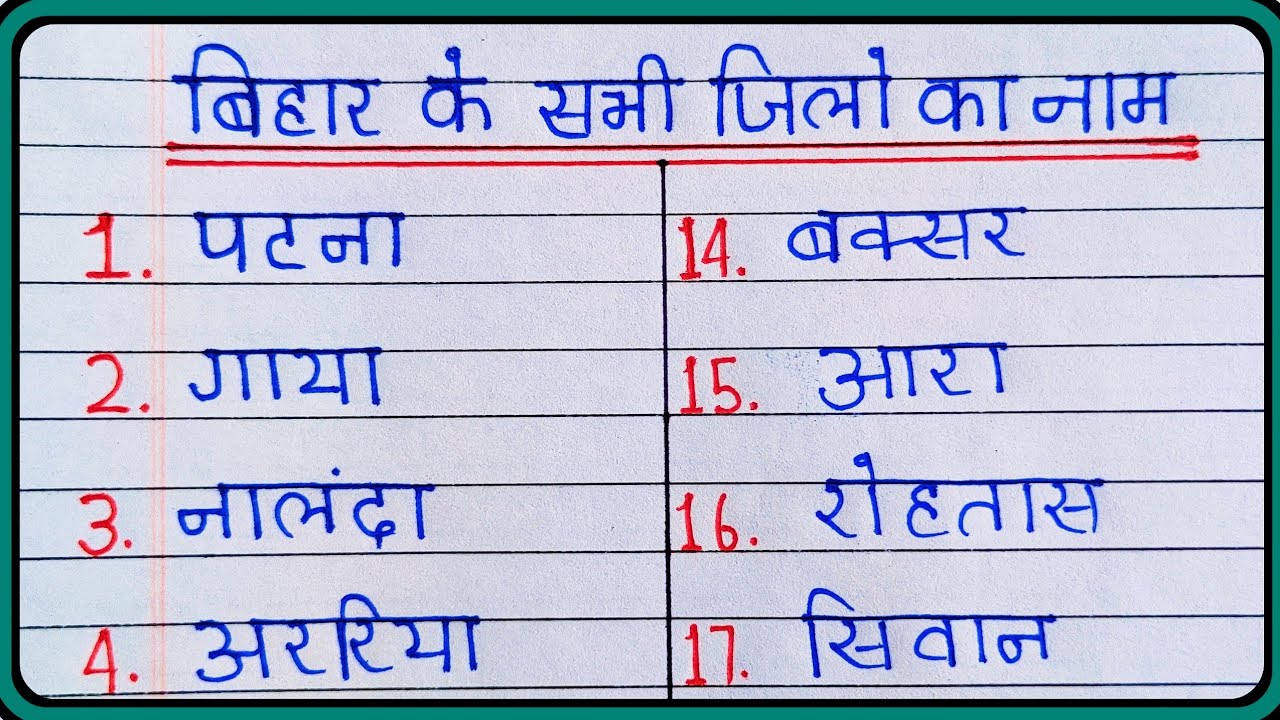 बिहार के सभी जिलो का नाम
1. पटना
2. गाया
3. नालंदा
4. अररिया
14. बक्सर
15. आरा
16. रोहतास
17. सिवान